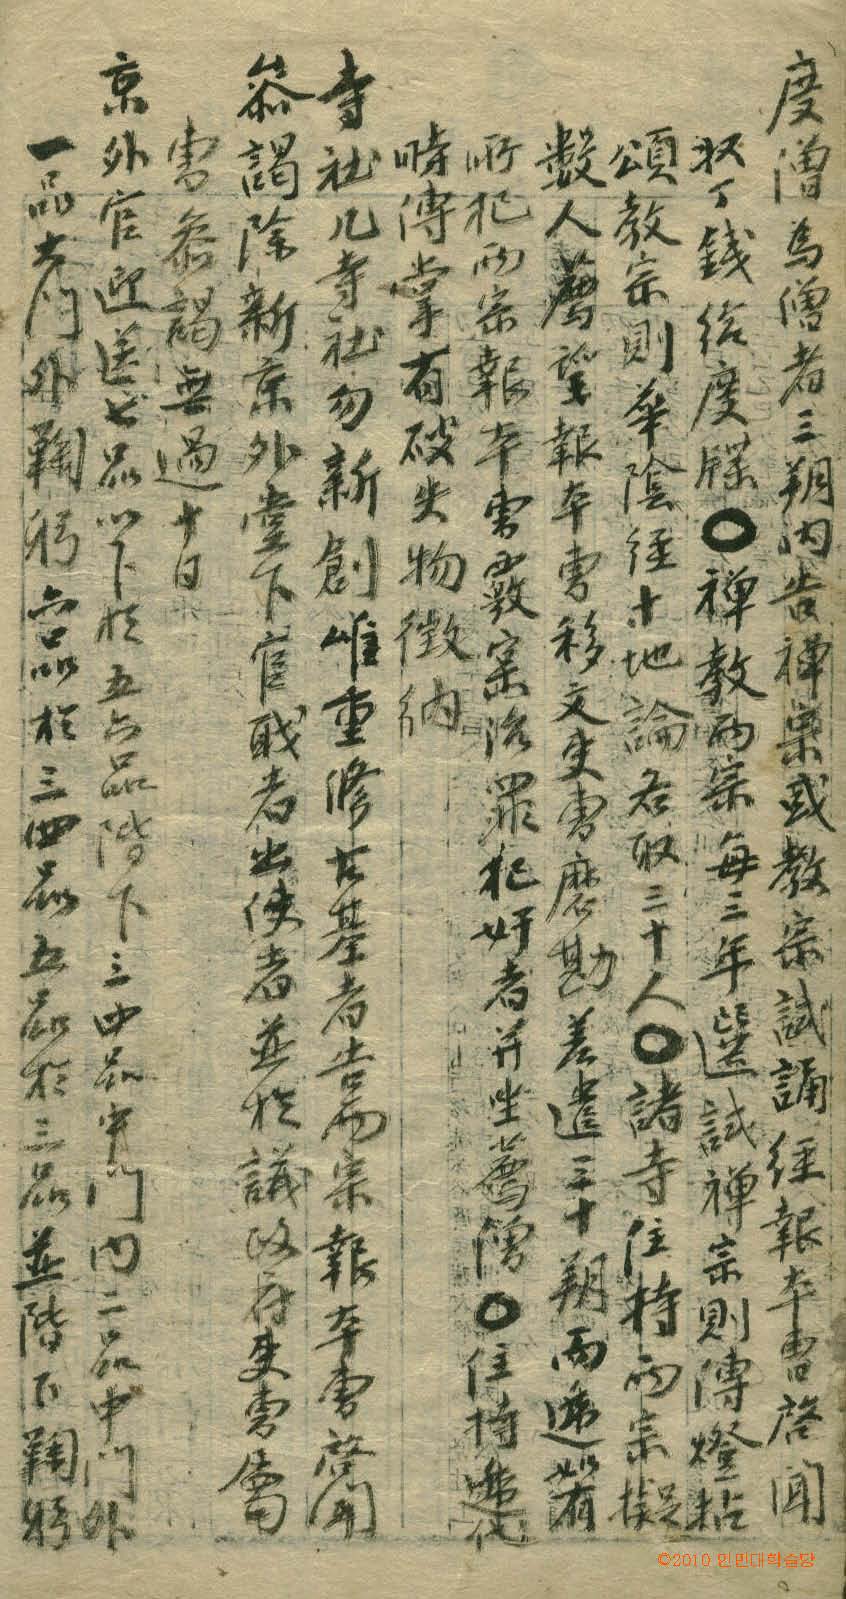 度僧爲僧者三朔內告禅宗或教宗試誦経報本曺啓聞
収丁錢給度牒〇禅教両宗每三年選試禅宗則傳燈拈
頌教宗則華陰経十地論各取三十人〇諸寺住持両宗擬
數人薦望報本曺移文吏曺磨勘差遣三十朔而遞如有
所犯両宗報本曺覈案治罪犯奸者并坐薦僧〇住持遞代
時傳掌有破失物徵納
寺社凡寺社勿新創唯重修古基者告両宗報本曺啓聞
叅謁除新京外堂下官職者出使者並於議政府吏曺屬
曺叅謁無過十日
京外官迎送七品以下於五六品階下三四品中門內二品中門外
一品大門外鞠躬六品於三四品五品於三品並階下鞠躬
©2010 인민대학습당